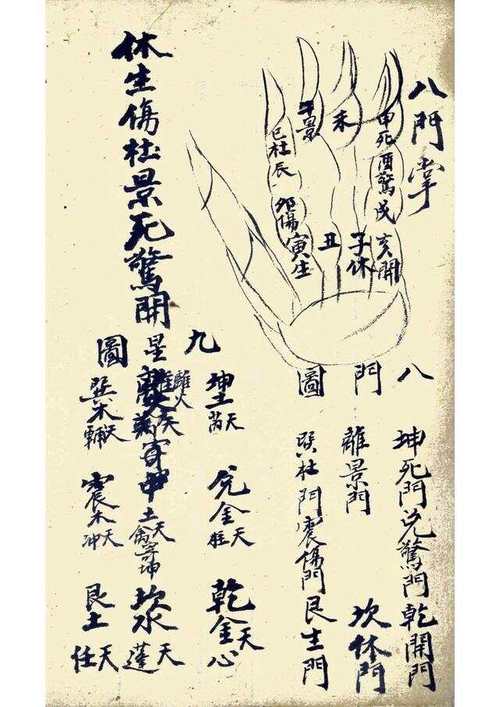 八門掌
申死酉驚戌亥開
未
子休
午景
丑
巳杜辰
卯傷寅生
休生傷杜景死驚開
八門圖
坤死門兌驚門乾開門
離景門
坎休門
巽杜門震傷門艮生門
九星圖
坤土天芮
兌金天柱
乾金天心
離火
天
寄中土天禽寄坤
坎水天蓬
巽木天輔
震木天冲
艮土天任